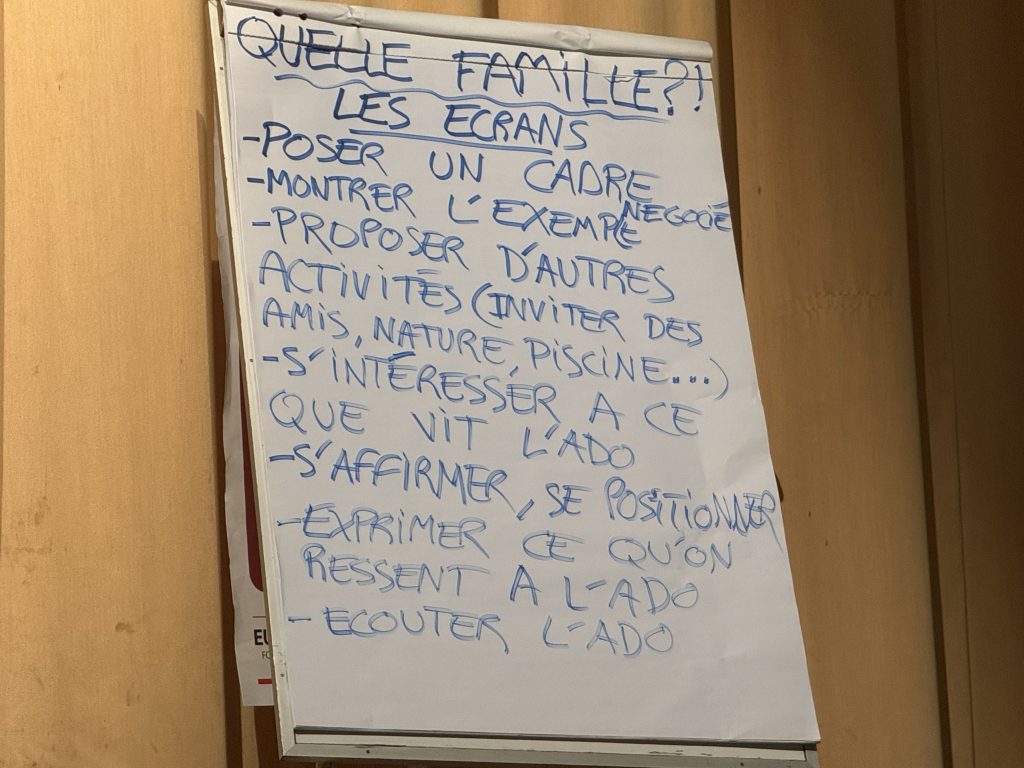 QUELLE FAMILLE?!
LES ECRANS
-POSER UN CADRE
NEGOCIÉ
-MONTRER L'EXEMPLE
-PROPOSER D'AUTRES
ACTIVITÉS (INVITER DES
AMIS, NATURE, PISCINE...)
-S'INTÉRESSER A CE
QUE VIT L'ADO
-S'AFFIRMER, SE POSITIONNER
-EXPRIMER CE QU'ON
RESSENT A L'ADO
- ECOUTER L'ADO